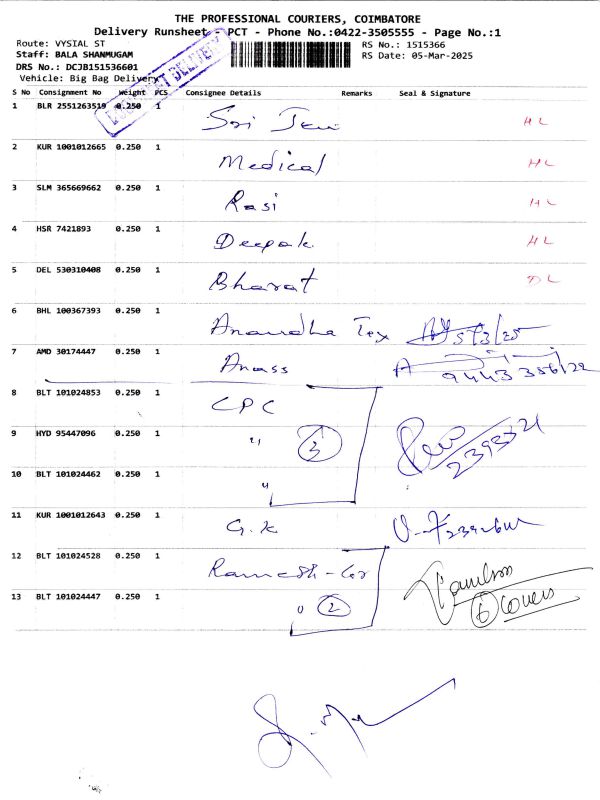 THE PROFESSIONAL COURIERS, COIMBATORE
Delivery Runsheet - PCT - Phone No.:0422-3505555 - Page No.:1
Route: VYSIAL ST
RS No.: 1515366
Staff: BALA SHANMUGAM
RS Date: 05-Mar-2025
DRS No.: DCJB151536601
Vehicle: Big Bag Delivery
S No Consignment No Weight PCS Consignee Details Remarks Seal & Signature
1 BLR 2551263519 0.250 1 Sri HL
2 KUR 1001012665 0.250 1 Medical HL
3 SLM 365669662 0.250 1 Rasi HL
4 HSR 7421893 0.250 1 Deepak HL
5 DEL 530310408 0.250 1 Bharat DL
6 BHL 100367393 0.250 1 Anandha Tex 5/3/25
7 AMD 30174447 0.250 1 Anass
8 BLT 101024853 0.250 1 CPC
9 HYD 95447096 0.250 1 " 3
10 BLT 101024462 0.250 1 "
11 KUR 1001012643 0.250 1 G.K
12 BLT 101024528 0.250 1 Ramesh
13 BLT 101024447 0.250 1 2 6 Covers